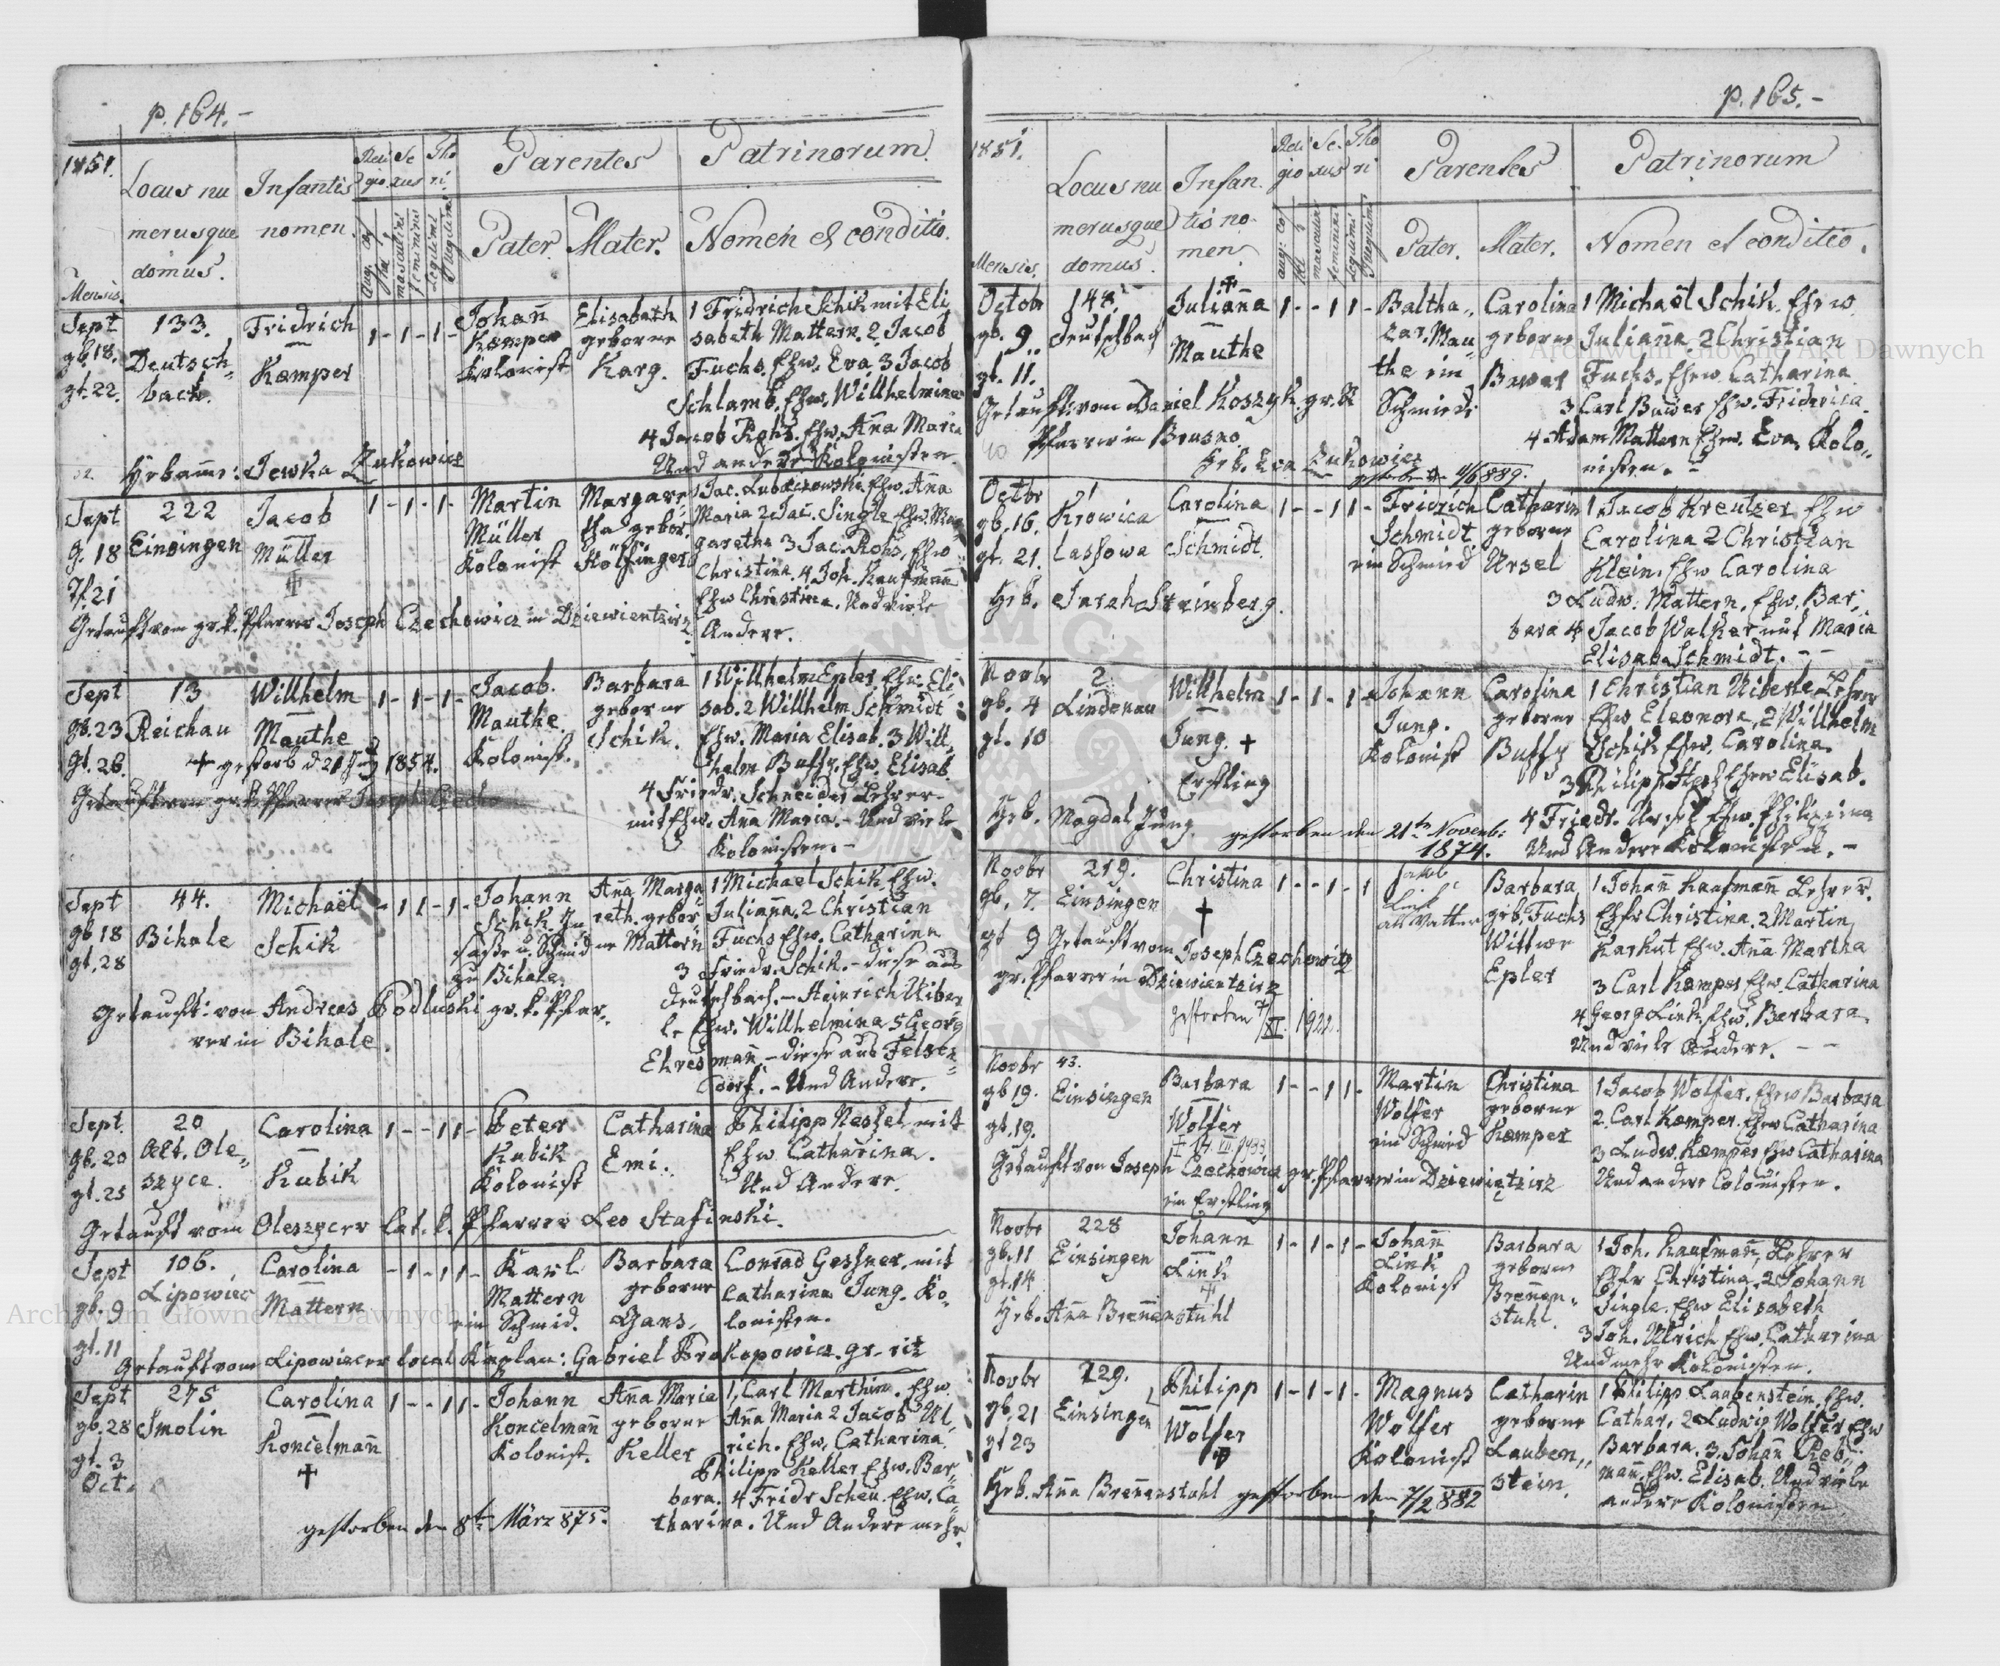 p. 164.-
1851.
Locus nu
merusque
domus.
Infantis
nomen.
Reli
gio
Se
xus
Tho
ri.
Parentes
Patrinorum.
Mensis.
aug. cof
masculini
feminini
Legitimi
Pater.
Mater.
Nomen et conditio.
Sept
gb. 18.
gt. 22.
133.
Deutsch-
bach.
Fridrich
Kemper
1 - 1 - 1 -
Johañ
Kemper
Kolonist
Elisabeth
geborne
Karg.
1 Fridrich Schik mit Eli
sabeth Mattern. 2 Jacob
Fuchs, Ehw. Eva, 3 Jacob
Schlamb, Ehw. Willhelmine
4 Jacob Rohs. Ehw. Aña Maria
Und andere Kolonisten.
Hebame: Jewka Zukowicz
Sept
g. 18
Tf. 21
222
Einsingen
Jacob
Müller
1 - 1 - 1 -
Martin
Müller
Kolonist
Margare
tha gebor.
Kölsinger
1 Jac. Lubaczowski Ehw. Aña
Maria 2 Jac. Single Ehw. Mar
garetha 3 Jac. Rohs, Ehw
Christina. 4 Joh. Kaufmañ
Ehw Christina. Und viele
Andere.
Getauft vom gr. k. Pfarrer Joseph Czechowicz in Dziewientzirz
Sept
gb. 23
gt. 26.
13
Reichau
Willhelm
Mauthe
1 - 1 - 1 -
Jacob.
Mauthe
Kolonist.
Barbara
geborne
Schik.
1 Willhelm Epler Ehw. Eli
sab. 2 Willhelm Schmidt
Ehw. Maria Elisab. 3 Will
helm Buffy, Ehw. Elisab
4 Friedr. Schneider Lehrer
mit Ehw. Aña Maria. - Und viele
Kolonisten. -
gestorb d 21 1854.
Getauft vom gr. k. Pfarrer Joseph Czecho
Sept
gb 18
gt. 28
44.
Bihale
Michaël
Schik
- 1 1 - 1 -
Johann
Schik In
saße u. Schmid
zu Bihale.
Aña Marga
reth. gebor
ne Mattern
1 Michael Schik, Ehw.
Juliaña. 2 Christian
Fuchs Ehw. Catharina
3 Friedr. Schik. - diese aus
Deutschbach. - Heinrich Uiber
le Ehw. Willhelmina 5 Georg
Ehresmañ - diese aus Felsen
dorf. - Und Andere.
Getauft: von Andreas Podluski gr. k. Pfar-
rer in Bihale.
Sept.
gb. 20
gt. 25
20
Alt. Ole-
szyce.
Carolina
Kubik
1 - - 1 1 -
Peter
Kubik
Kolonist
Catharina
Emi.
Philipp Nessel mit
Ehw. Catharina.
Und Andere.
Getauft vom Oleszycer lat. k. Pfarrer Leo Stafinski.
Sept
gb. 9
gt. 11
106.
Lipowiec
Carolina
Mattern
- 1 - 1 1 -
Karl
Mattern
ein Schmid.
Barbara
geborne
Gans,
Conrad Gessner, mit
Catharina Jung. Ko-
lonisten.
Getauft vom Lipowiecer local Kaplan: Gabriel Prokopowicz. gr. rit
Sept
gb. 28
gt. 3
Oct.
275
Smolin
Carolina
Koncelmañ
1 - - 1 1 -
Johann
Koncelmañ
Kolonist.
Aña Maria
geborne
Keller
1, Carl Marthin. Ehw.
Aña Maria 2 Jacob Ul
rich. Ehw. Catharina
Philipp Keller Ehw. Bar-
bara. 4 Fridr Scheu. Ehw. Ca
tharina. Und Andere mehr.
gestorben den 8t März 875.
p. 165.-
1851.
Mensis.
Locus nu
merusque
domus.
Infan.
tis no-
men.
Reli
gio
Se.
xus
Tho
ri
Parentes
Patrinorum
aug. cof
masculini
feminini
Legitimi
Pater.
Mater.
Nomen et conditio.
Octob
gb. 9
gt. 11.
148.
Deutschbach
Juliaña
Mauthe
1 - - 1 1 -
Baltha-
zar. Mau-
the ein
Schmied
Carolina
geborne
Bawer
1 Michaël Schik Ehew
Juliaña 2 Christian
Fuchs. Ehew Catharina
3 Carl Bawer Ehw. Friderica
4 Adam Mattern Ehew. Eva. Kolo-
nisten. -
Getauft: vom Daniel Koszyk. gr. R
Pfarrer in Brusno
Heb. Eva Zukowicz
Octbr
gb. 16.
gt. 21.
1
Krowica
lassowa
Carolina
Schmidt.
1 - - 1 1 -
Fridrich
Schmidt
ein Schmied
Catharin
geborne
Ursel
1 Jacob Kreutzer Ehw
Carolina 2 Christian
Klein. Ehw Carolina
3 Ludw. Mattern. Ehw. Bar-
bara 4 Jacob Walker mit Maria
Elisab. Schmidt. - -
Heb. Sarah Steinberg.
Novbr
gb. 4
gt. 10
2
Lindenau
Willhelm
Jung.
Erstling
1 - 1 - 1 -
Johann
Jung.
Kolonist
Carolina
geborne
Buffy
1 Christian Uiberle Lehrer
Ehw Eleonora, 2 Willhelm
Schik Ehw. Carolina.
Elisab.
4 Friedr. Ursel Ehw. Philippina
Und Andere Kolonisten. -
Heb. Magdal Jung.
gestorben den 21tn Novemb:
1874.
Novbr
gb. 7.
gt 9
219.
Einsingen
Christina
1 - - 1 - 1
Jakob
Link
als Vatter
Barbara
geb. Fuchs
Wittwe
Epler
1 Johañ Kaufmañ Lehrer.
Ehfr Christina. 2 Martin
Karhut Ehw. Aña Martha
3 Carl Kemper Ehw. Catharina
4 Georg Link. Ehw. Barbara.
Und viele Andere. - -
Getauft vom Joseph Czechowitz
gr. Pfarrer in Dziewientzirz
gestorben
Novbr
gb 19.
gt. 19.
43.
Einsingen
Barbara
Wolfer
1 - - 1 1 -
Martin
Wolfer
ein Schmid
Christina
geborne
Kemper
1 Jacob Wolfer. Ehew Barbara
2. Carl Kemper. Ehw Catharina
3 Ludw. Kemper Ehw Catharina
Und andere Colonisten.
Getauft von Joseph Czechowicz gr. Pfarrer in Dziewiętzirz
ein Erstling
Novbr
gb. 11
gt. 14
228
Einsingen
Johann
Link
1 - 1 - 1 -
Johañ
Link
Kolonist
Barbara
geborn
Breñen-
stuhl.
1 Joh. Kaufmañ, Lehrer
Ehfr Christina. 2 Johann
Single. Ehw Elisabeth
3 Joh. Ulrich Ehw. Catharina
Und mehr Kolonisten.
Heb. Aña Breñenstuhl
Novbr
gb. 21
gt 23
229.
Einsingen
Philipp
Wolfer
1 - 1 - 1 -
Magnus
Wolfer
Kolonist
Catharin
geborne
Lauben-
stein.
1 Philipp Laubenstein. Ehw.
Cathar, 2 Ludwig Wolfer Ehw
Barbara. 3. Johañ Reb-
mañ. Ehw. Elisab. Und viele
andere Kolonisten
Heb. Aña Breñenstuhl gestorben den 7/2 882
Archiwum Główne Akt Dawnych
Archiwum Główne Akt Dawnych